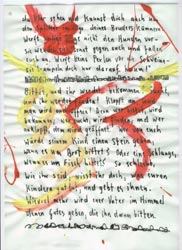 klar sehen und kannst dich auch um
den Splitter in deines Bruders kümmern
nicht den
sonst gegen euch und fallen
euch an. Werft keine Perlen vor die Schweine
doch nur darauf herum.
Bittet und ihr werdet bekommen.
und ihr werdet finden. Klopft an und
man wird euch öffnen. Denn wer bittet, wird
bekommen, wer sucht, wird finden und wer
anklopft, dem wird geöffnet. Wer von euch
würde seinem Kind einen Stein geben,
wenn es um Brot bittet? Oder eine Schlange,
wenn es um Fisch bittet? So schlecht,
wie ihr seid, ihr doch, euren
Kindern gut ist, und gebt es ihnen.
Wieviel mehr wird euer Vater im Himmel
denen Gutes geben, die ihn darum bitten.